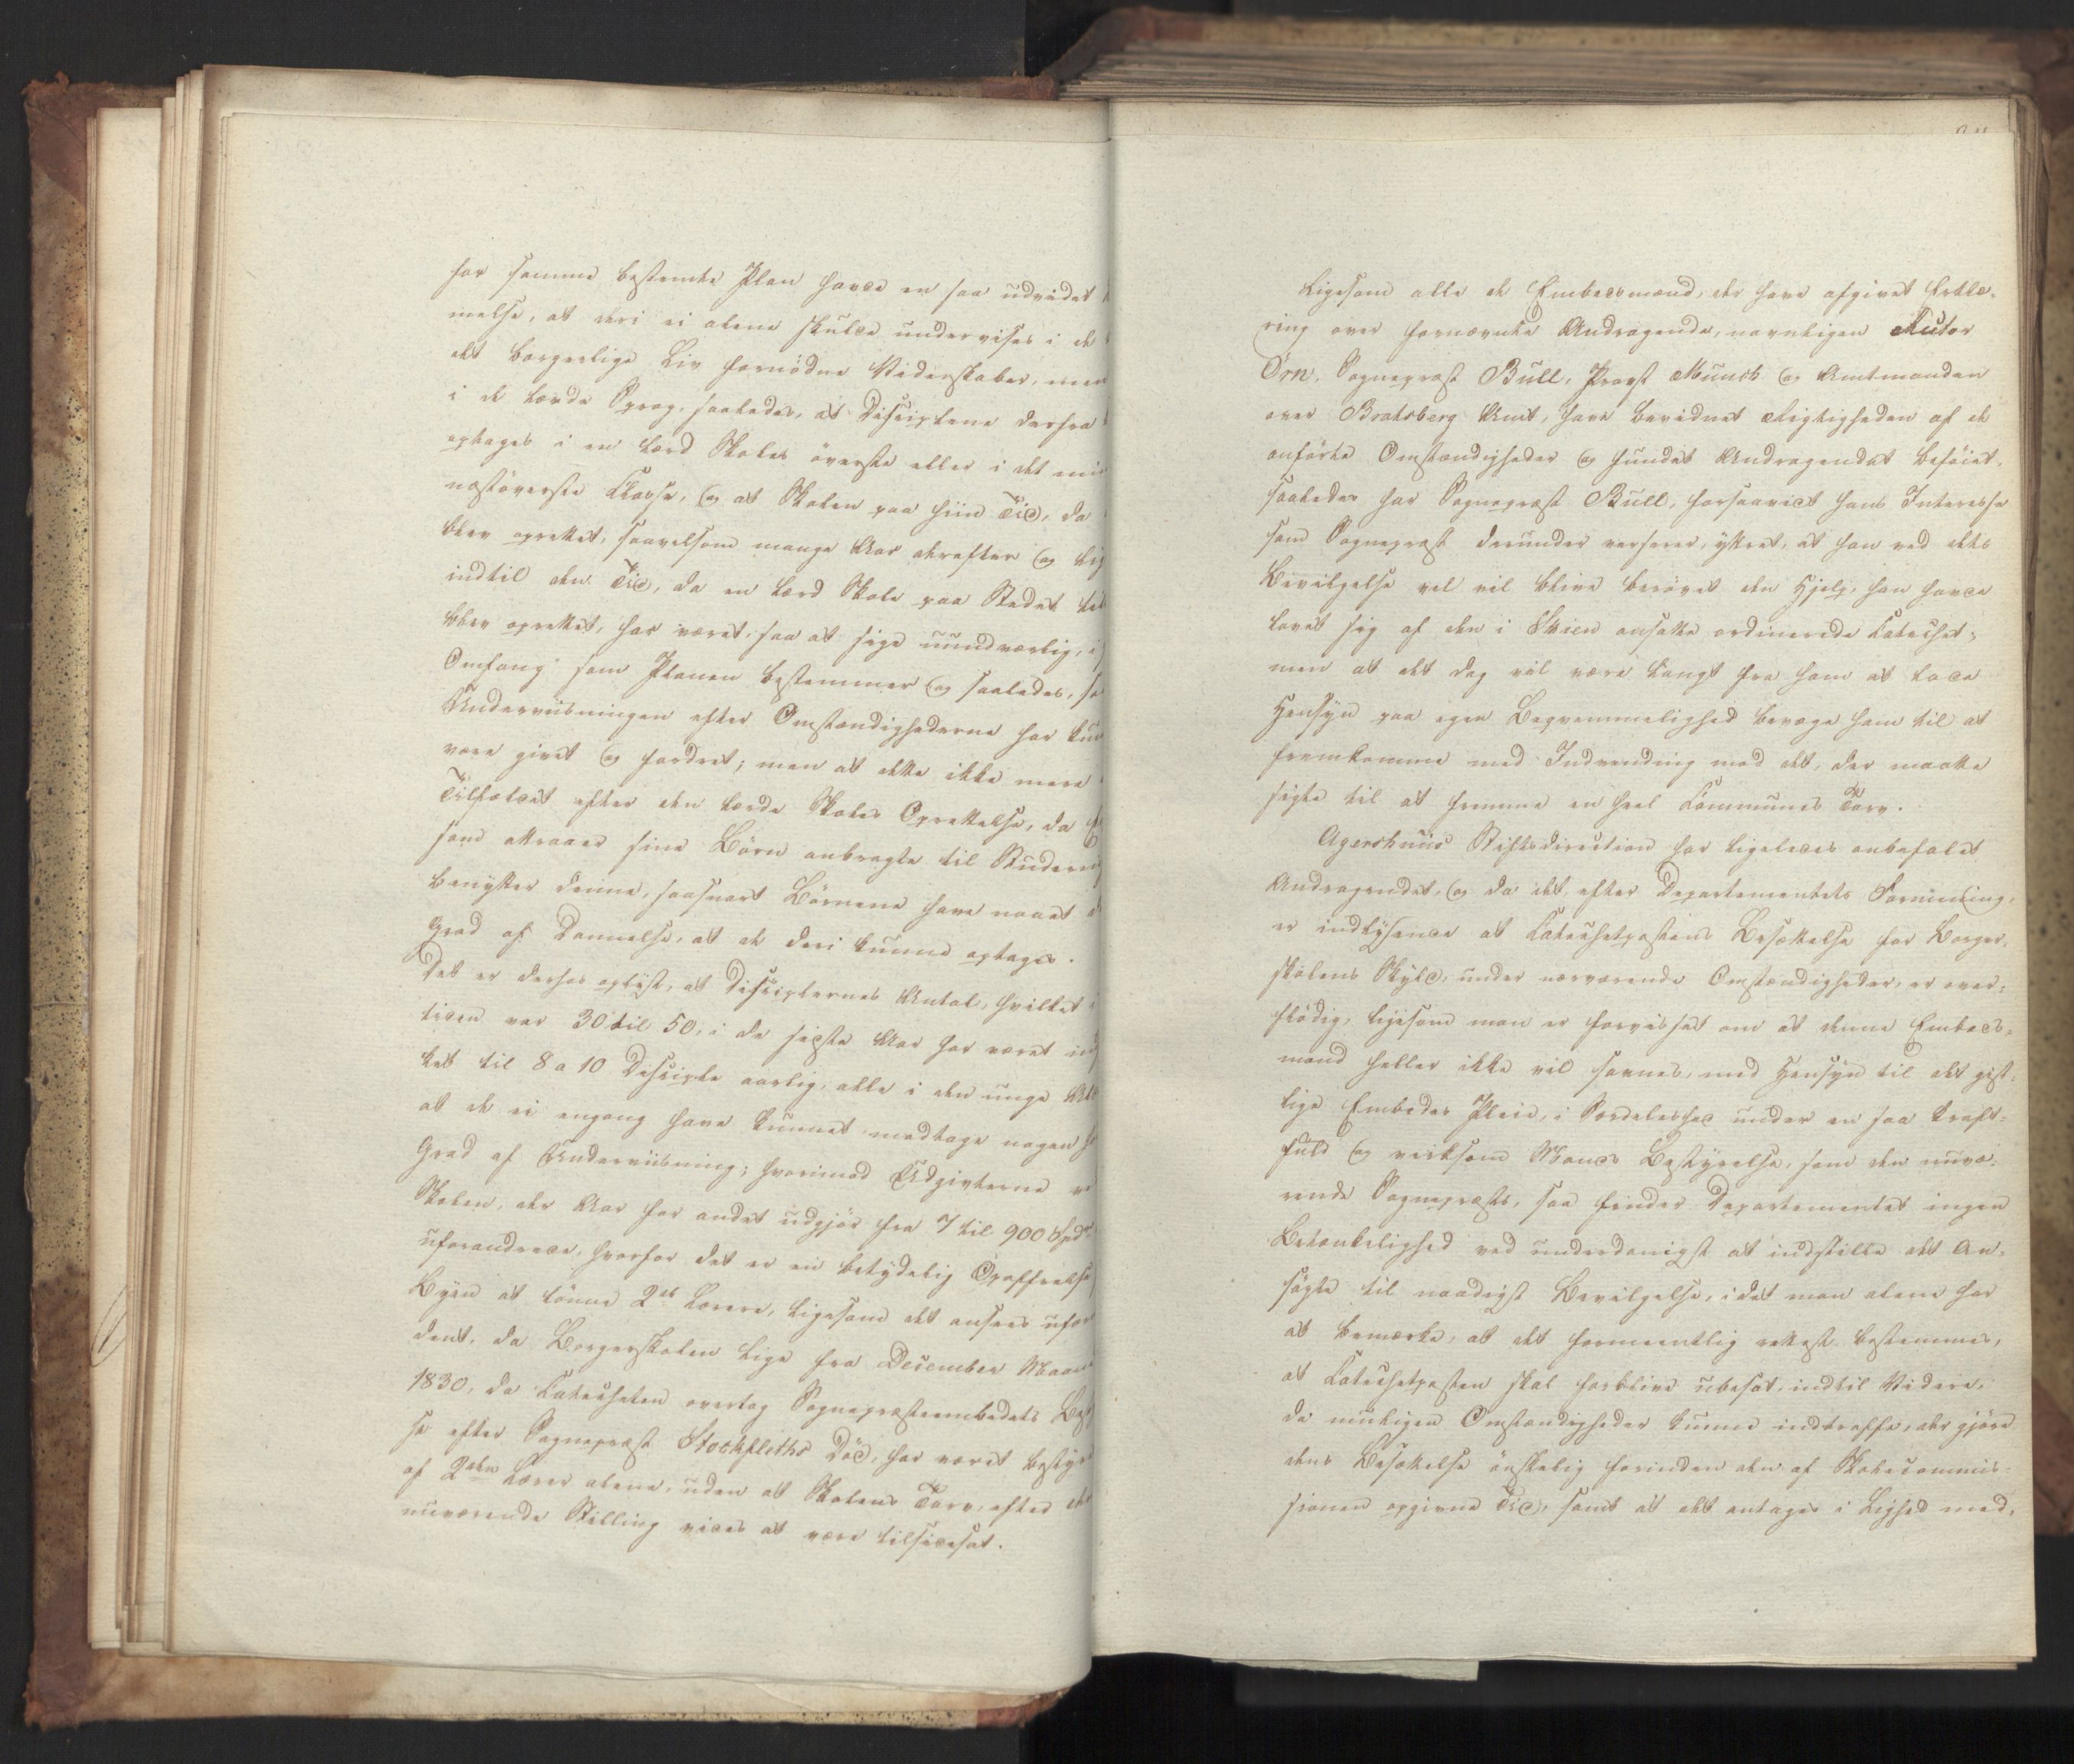 for samme bestemte Plan havde en saa udvidet
melse, at deri ei alene skulde undervises i de
det borgerlige Liv fornødne Videnskaber, men
i de lærde Sprog, saaledes, at Disciplene derfra
optages i en lærd Skoles øverste eller i det min
næstøverste Classe, og at Skolen paa hiin Tid, da
blev oprettet, saavelsom mange Aar derefter og lig
indtil den Tid, da en lærd Skole paa Stedet
blev oprettet, har været, saa at sige uundværlig, i
Omfang som Planen bestemmer og saaledes, so
Underviisningen efter Omstændighederne har kun
være givet og fordret; men at dette ikke mere
Tilfældet efter den lærde Skoles Oprettelse, da
som attraaer sine Børn anbragte til Studerin
benytter denne, saasnart Børnene have naaet
Grad af Dannelse, at de deri kunne optages.
Det er derhos oplyst, at Disciplernes Antal, hvilket
tiden var 30 til 50, i de sidste Aar har været ind
ket til 8 a 10 Disciple aarlig, alle i den unge Ald
at de ei engang have kunnet modtage nogen
Grad af Underviisning; hvorimod Udgivterne
Skolen, det Aar for andet udgjør fra 7 til 900 Spd
uforandrede, hvorfor det er en betydelig Opoffrelse
Byen at lønne 2de Lærere, ligesom det ansees
dent, da Borgerskolen lige fra December Maan
1830, da Catecheten overtog Sognepræsteembedets Best
se efter Sognepræst Stockfleths Død, har været bestyr
af 2den Lærer alene, uden at Skolens Tarv, efter
nuværende Stilling vides at være tilsidesat.
Ligesom alle de Embedsmænd, der have afgivet Erklæ-
ring over fornævnte Andragende, navnligen Rector
Örn, Sognepræst Bull, Provst Munch og Amtmanden
over Bratsberg Amt, have bevidnet Rigtigheden af de
anførte Omstændigheder og fundet Andragendet beføiet,
saaledes har Sognepræst Bull, forsaavidt hans Interesse
som Sognepræst derunder verserer, yttret, at han ved dets
Bevilgelse vel vil blive berøvet den Hjelp, han havde
lovet sig af den i Skien ansatte ordinerede Catechet;
men at det dog vil være langt fra ham at lade
Hensyn paa egen Beqvemmelighed bevæge ham til at
fremkomme med Indvending mod det, der maatte
sigte til at fremme en heel Communes Tarv.
Agershuus Stiftsdirection har ligeledes anbefalet
Andragendet, og da det, efter Departementets Formening,
er indlysende at Catechetpostens Besættelse for Borger-
skolens Skyld, under nærværende Omstændigheder, er over-
flødig, ligesom man er forvisset om at denne Embeds-
mand heller ikke vil savnes, med Hensyn til det gist-
lige Embedes Pleie, i Særdeleshed under en saa kraft-
fuld og virksom Mands Bestyrelse, som den nuvæ-
rende Sognepræsts, saa finder Departementet ingen
Betænkelighed ved underdanigst at indstille det An-
søgte til naadigst Bevilgelse, idet man alene har
at bemærke, at det formeentlig rettest bestemmes,
at Catechetposten skal forblive ubesat, indtil Videre,
da muligen Omstændigheder kunne indtræffe, der gjøre
dens Besættelse ønskelig forinden den af Skolecommis-
sionen opgivne Tid, samt at det antages i Lighed med,